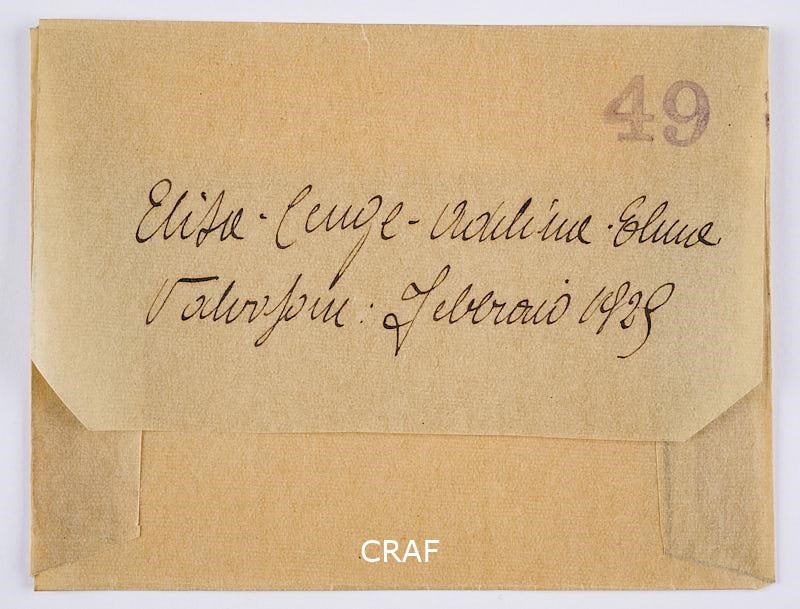 49
Elisa - Cenge - Adelina - Elena
Valvasone: Febbraio 1929
CRAF